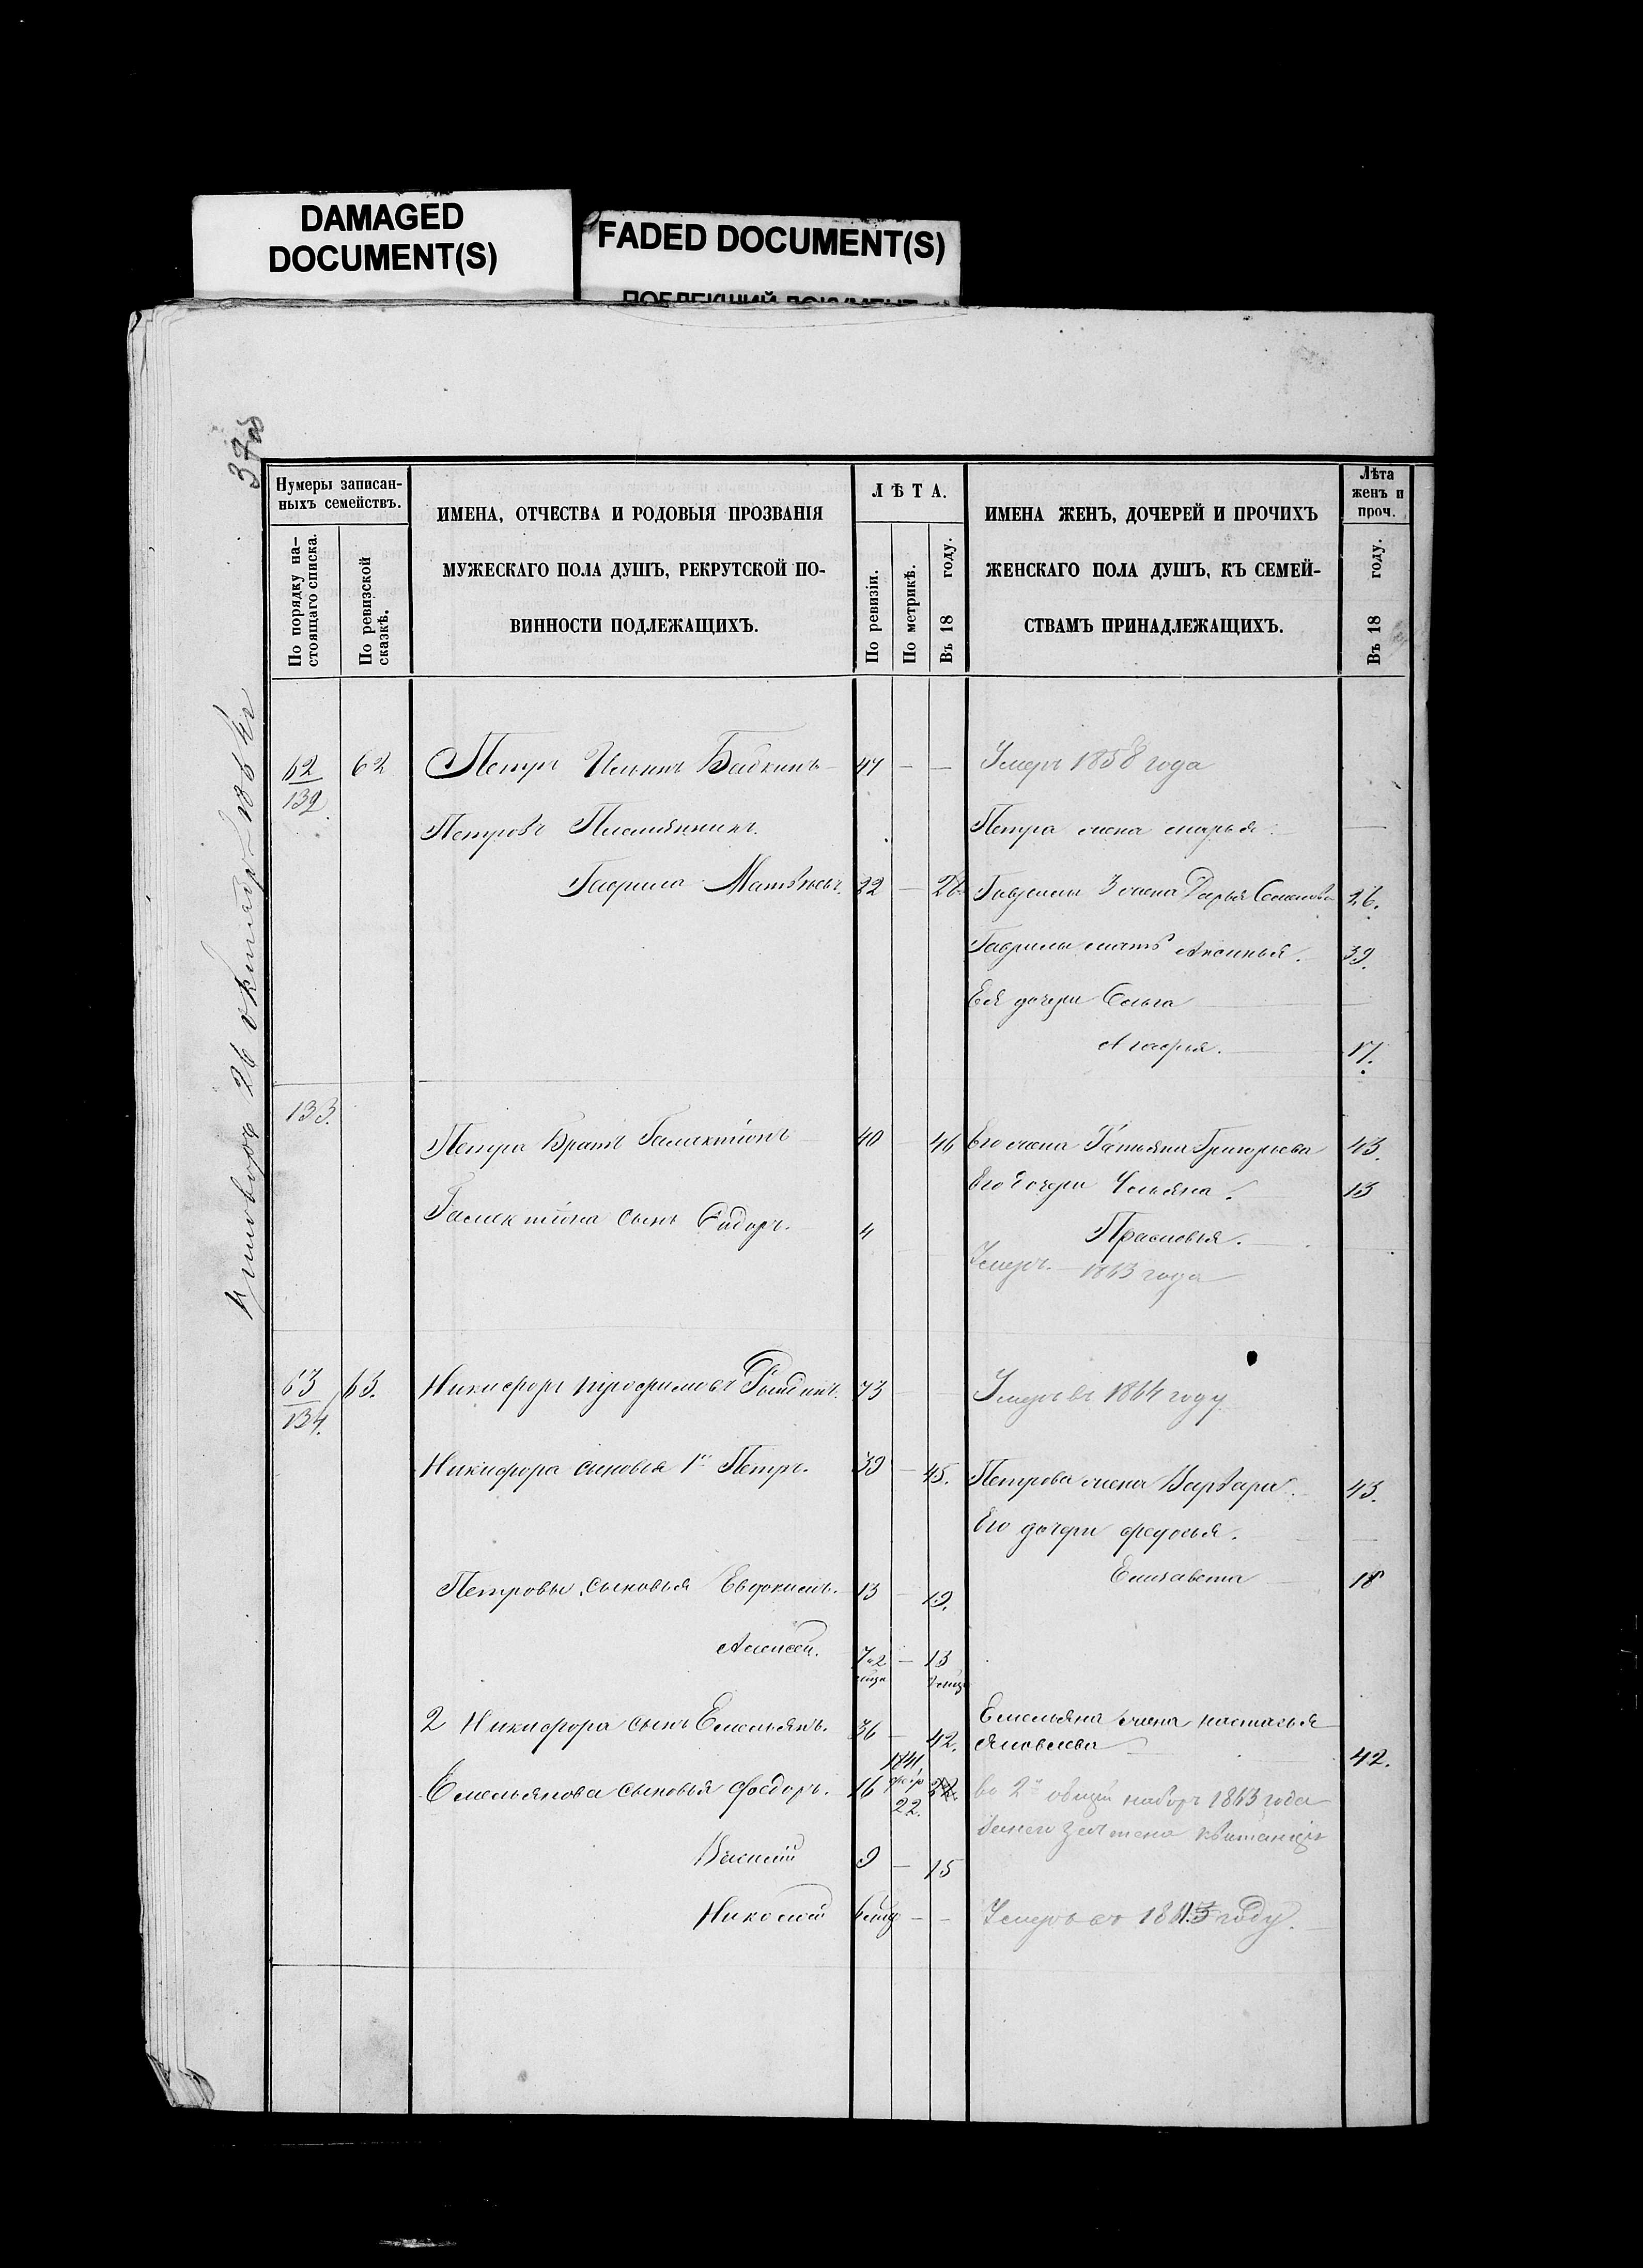 DAMAGED
DOCUMENT(S)
FADED DOCUMENT(S)
Нумеры записан-
ныхъ семействъ.
По порядку на-
стоящаго списка.
По ревизской
сказкѣ.
ИМЕНА, ОТЧЕСТВА И РОДОВЫЯ ПРОЗВАНІЯ
МУЖЕСКАГО ПОЛА ДУШЪ, РЕКРУТСКОЙ ПО-
ВИННОСТИ ПОДЛЕЖАЩИХЪ.
ЛѢТА.
По ревизіи.
По метрикѣ.
Въ 18 году.
ИМЕНА ЖЕНЪ, ДОЧЕРЕЙ И ПРОЧИХЪ
ЖЕНСКАГО ПОЛА ДУШЪ, КЪ СЕМЕЙ-
СТВАМЪ ПРИНАДЛЕЖАЩИХЪ.
Лѣта
женъ и
проч.
Въ 18 году.
62 62 Петръ Ильинъ Бабкинъ 47 — — Умеръ 1858 года
132.
Петровъ Племянникъ. Петра жена Марья. —
Гаврила Матвѣевъ. 22 — 28 Гаврилы 3 жена Дарья Семенова 26.
Гаврилы мать Аксинья. 39.
Ея дочери Ольга —
Агафья. 17.
133.
Петра Братъ Галактіонъ 40 46 Его жена Татьяна Григорьева 43.
Его дочери Ульяна. 13
Галактіона сынъ Сидоръ. 4 Прасковья.
Умеръ 1863 года
63 63. Никифоръ Трофимовъ 73 Умеръ въ 1864 году
134.
Никифора сыновья 1й Петръ. 39 — 45. Петрова жена Варвара. 43.
Его дочери Федосья. —
Елизавета 18
Петровы сыновья Евдокимъ. 13 — 19.
Алексей. 7 — 13
2 Никифора сынъ Емельянъ. 36 — 42. Емельяна жена Настасья
Яковлева 42.
1841
Емельянова сыновья Федоръ. 16 22. во 2й общій наборъ 1863 года
квитанція
Василій 9 — 15
Николай — — Умеръ въ 1863 году.